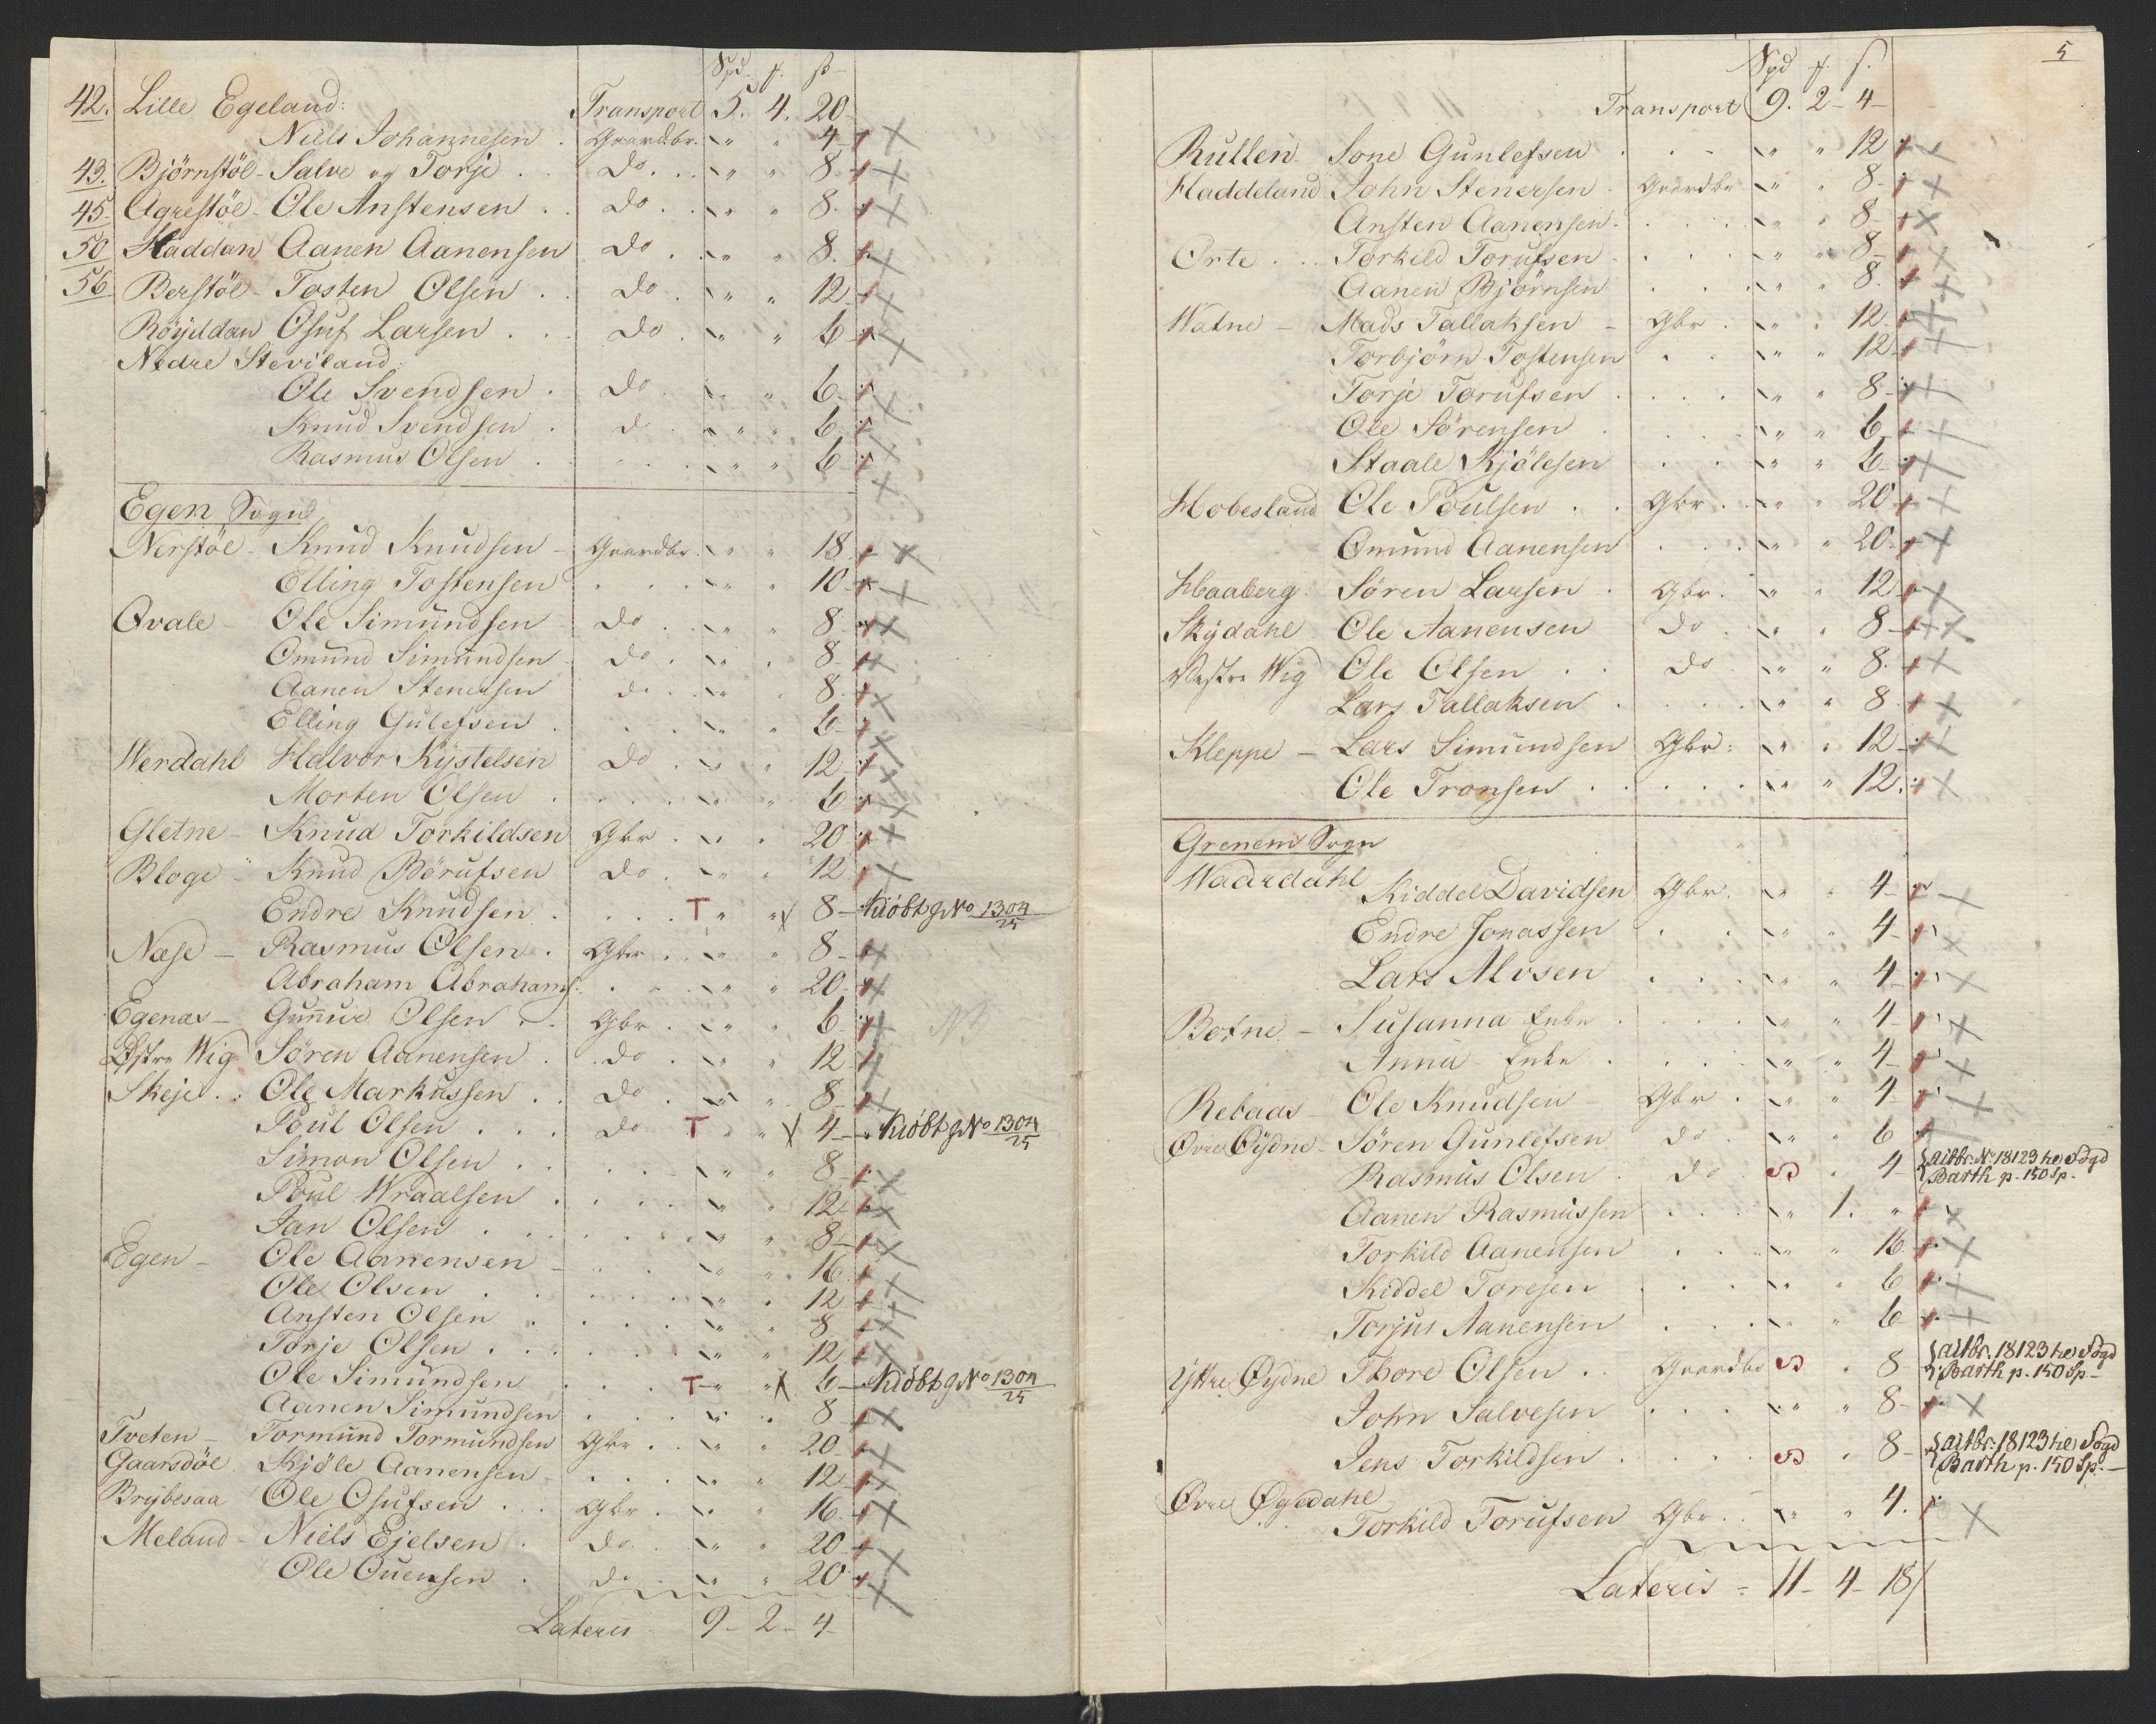 Spd f. ß
42. Lille Egeland: Transport 5. 4. 20
Niels Johannesen . Gaardbr. " " 4
43. Björnstöl - Salve og Torje . . Do . . " " 8.
45. Agrestöl - Ole Anstensen . . Do . . " " 8.
50 Haddan Aanen Aanensen Do . . " " 8.
56 Berstöl - Tosten Olsen . . Do . " " 12
Röÿddan Osuf Larsen . . . Do . " " 6
Nedre Steviland
Ole Svendsen . Do . " " 6
Knud Svendsen . d . " " 6
Rasmus Olsen . . . . " " 6
Egen Sogn
Nerstöl - Knud Knudsen - Gaardbr. " " 18
Elling Tostensen . . . " " 10
Ovale - Ole Simundsen - Do . " " 8
Omund Simundsen Do . " " 8
Aanen Stenersen do . " " 8
Elling Gulefsen . . . " " 6
Werdahl Halvor Kystelsen Do . " " 12
Morten Olsen . . . . " " 6
Gletne - Knud Torkildsen Gbr . " " 20
Bloge - Knud Börufsen Do . " " 12
Endre Knudsen . . . T " " 8 - Kiöbt g No 1304/25
Nese - Rasmus Olsen . Gbr . " " 8
Abraham Abrahams: . . " " 20
Egenas - Gunnur Olsen . . Gbr . " " 6 NB
Østre Wig Sören Aanensen . . do . " " 12
Skeje . : Ole Markussen . . Do . " " 8
Poul Olsen . . . do T " " 4 - Kiöbt g No 1304/25
Simon Olsen . . . . " " 8
Poul Wraalsen . . . . " " 12
Jan Olsen . . . . . " " 8
Egen - Ole Aanensen - . . " " 16
Ole Olsen . . . . " " 12
Ansten Olsen . . . . " " 8
Torje Olsen . . . . . " " 12
Ole Simundsen . . . T " " 6 - Kiöbt g No 1304/25
Aanen Simundsen . . . " " 8
Tveten - Tormund Tormundsen Gbr . " " 20
Gaarsdöl Kjöle Aanensen - . . . " " 12
Brÿbesaa Ole Osufsen . . Gbr . " " 16
Meland - Niels Ejelsen . Do . " " 20
Ole Ouensen . do " " 20
Lateris - 9 - 2 - 4 -
5
Spd f. ß.
Transport 9. 2 - 4 -
Rullen Sone Gunlefsen . . . " " 12
Haddeland John Stenersen Gaardbr " " 8
Ansten Aanensen . . . " " 8
Orte . . Torkild Torufsen . . . " " 8
Aanen Björnsen . . . " " 8.
Watne - Mads Tallaksen - Gbr . " " 12
Torbjörn Tostensen . . " " 12
Torje Torufsen . . . " " 8
Ole Sörensen . . . " " 6
Staale Kjölesen . . " " 6
Hobesland Ole Poulsen . . Gbr . " " 20
Omund Aanensen . . . " " 20
Haaberg Sören Larsen . Gbr . " " 12
Skÿdahl Ole Aanensen Do . " " 8
Vestre Wig Ole Olsen . . do . " " 8
Lars Tallaksen . . . " " 8
Kleppe - Lars Simundsen Gbr . " " 12
Ole Tronsen . . . . " " 12.
Grenem Sogn
Waardahl Kiddel Davidsen Gbr . " " 4
Endre Jonassen . . " " 4
Lars Alvsen . . . " " 4
Botne - Susanna Enke . . . " " 4
Anna Enke . . . " " 4
Rebaas - Ole Knudsen - Gbr . " " 4
Øvre Øÿdne - Sören Gunlefsen do . " " 6
Rasmus Olsen . do S " 4
Barth p. 150 Sp.
Aanen Rasmussen . . . " 1. "
Torkild Aanensen . . . " " 16
Kiddel Toresen . . . " " 6
Torjus Aanensen . . . " " 6
Yttre Øydne Thore Olsen . . Gaardbr S " 8
Barth p. 150 Sp -
John Salvesen . . . " " 8
Jens Torkildsen . . . S " 8
Barth p. 150 Sp. -
Øvre Øgedahl
Torkild Torufsen Gbr . . " " 4.
Lateris = 11 - 4 - 18/